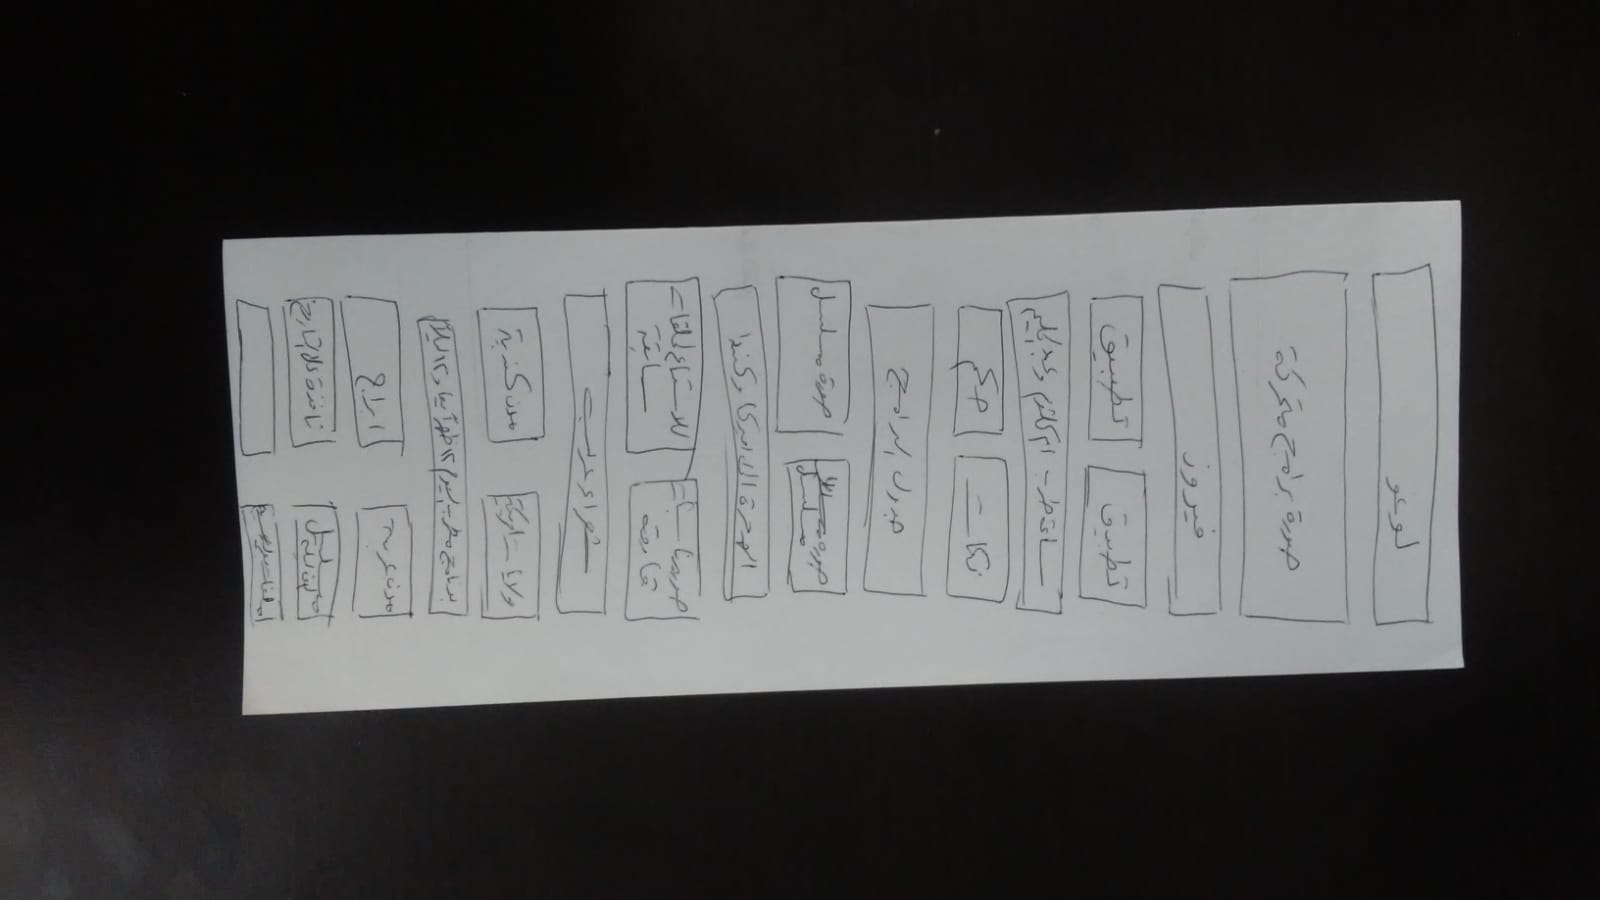 لوغو
صورة برامج متحركة
فيروز
تطبيق
تطبيق
ساعة طرب ام كلثوم وعبد الحليم
نكات
حكم
جدول البرامج
صورة
مسلسل
صورة مسلسل
الهجرة الى اميركا وكندا
للاستماع لحلقات
سابقة
شعراء عرب
ولايات امريكية
مدن كندية
برنامج مطرب اليوم ١٢ ظهراً و١٢ ليلاً
مدن عربية
ابراج
مسلسل
نافذة على التاريخ